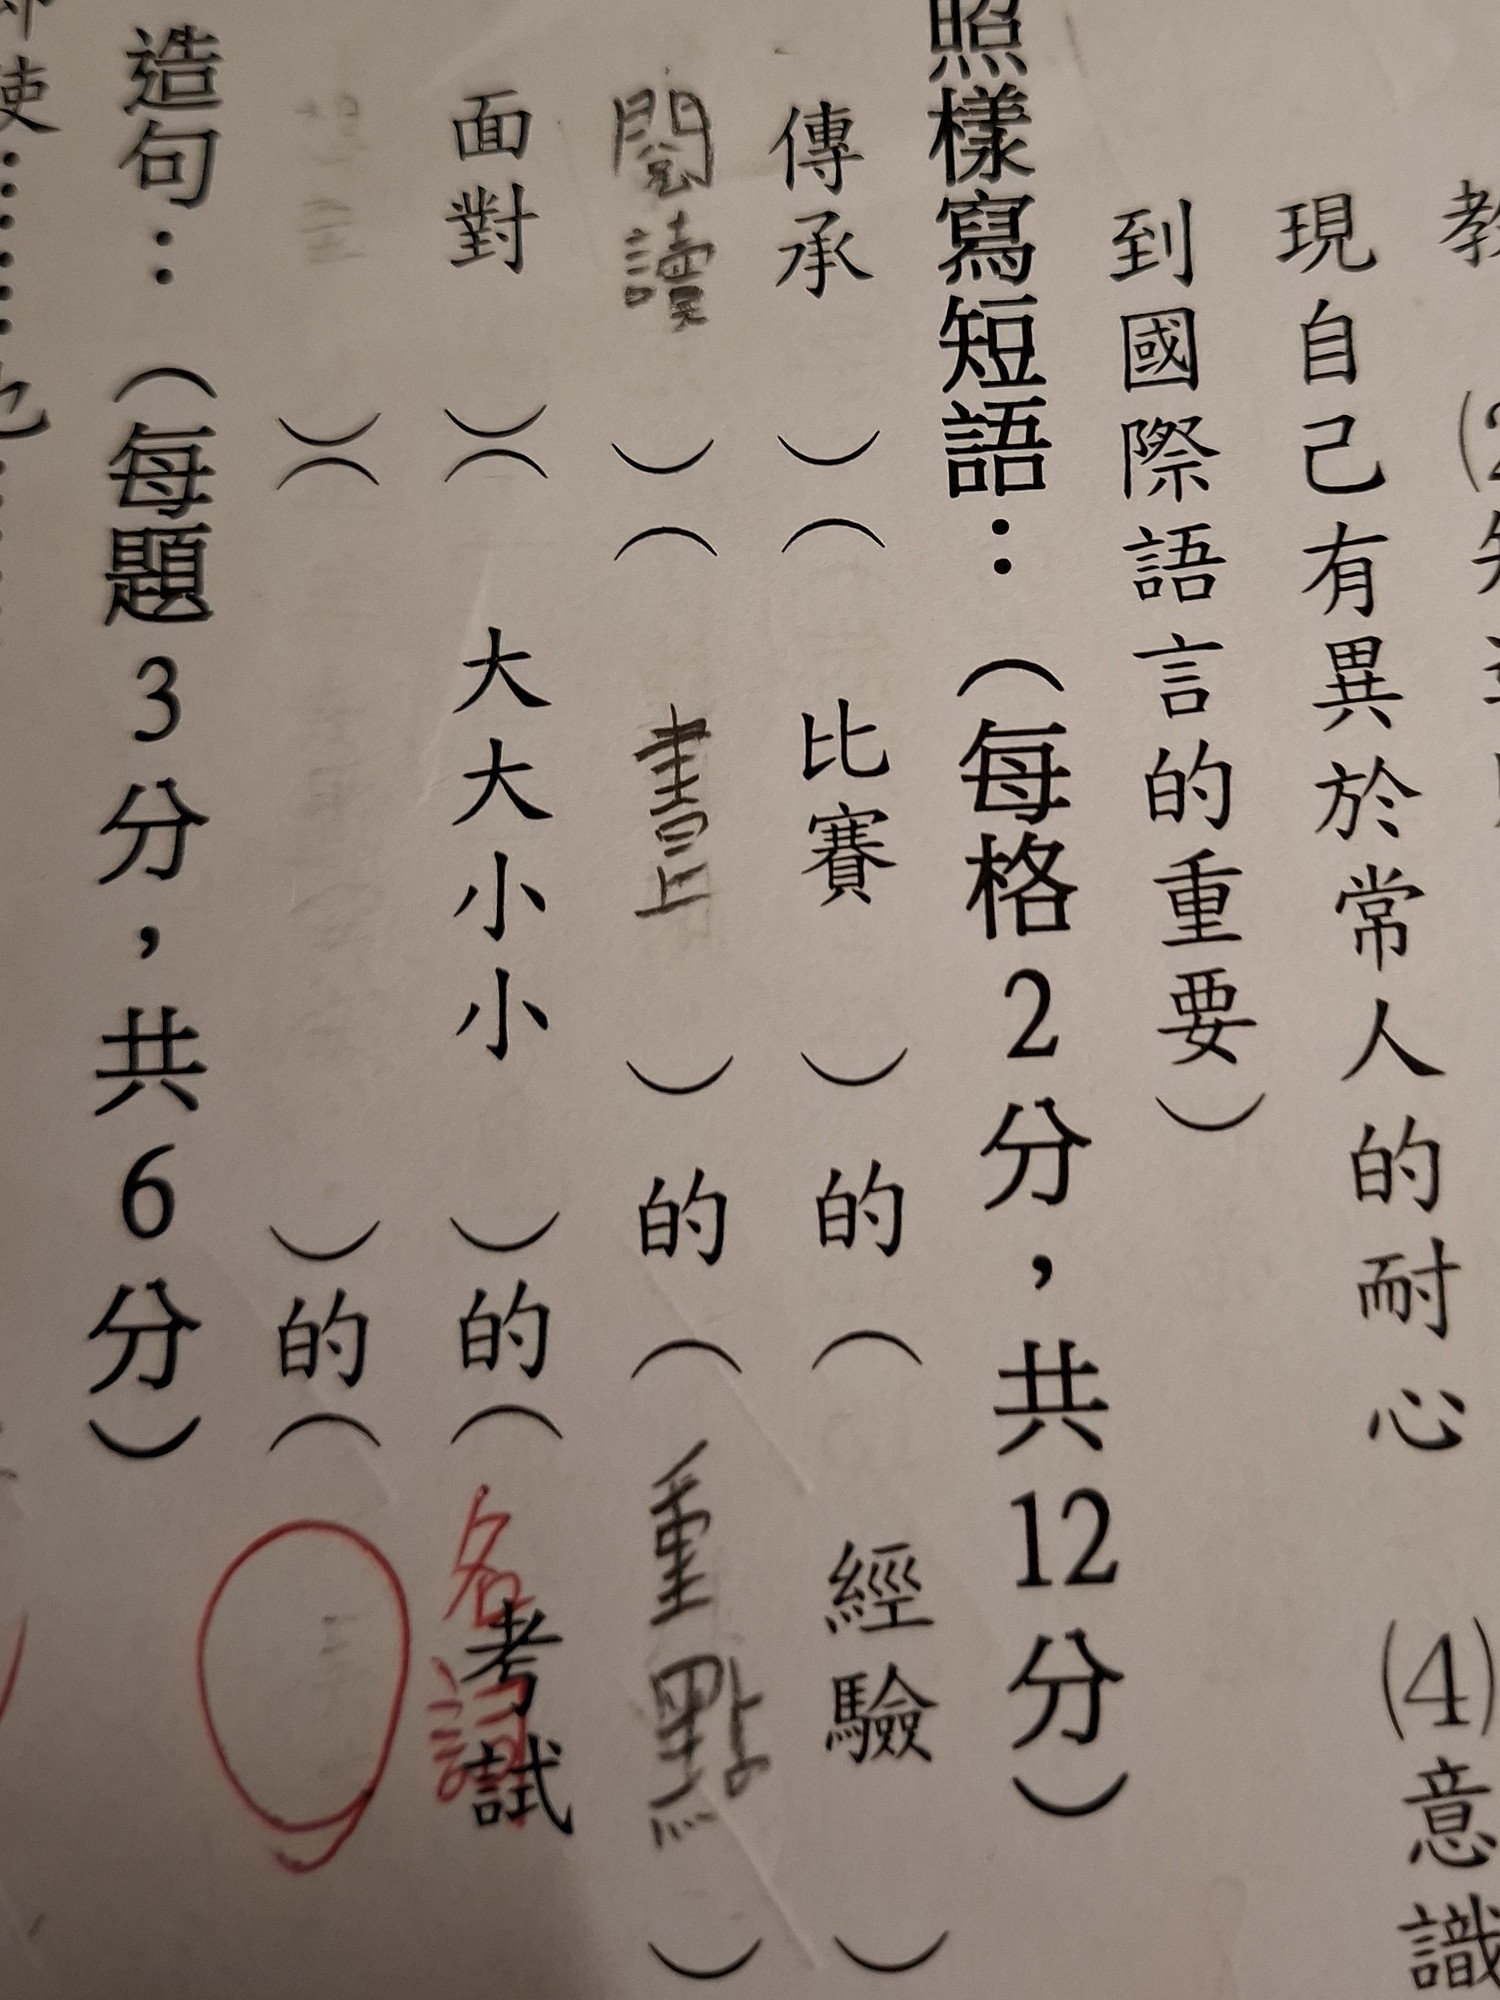 教 (2
現自己有異於常人的耐心 (4)意識
到國際語言的重要)
照樣寫短語：(每格2分，共12分)
傳承 )( 比賽 )的( 經驗 )
閱讀 )( 書上 )的( 重點 )
面對 )( 大大小小 )的( 考試
名詞
)( )的(
造句：(每題3分，共6分)
使……也……